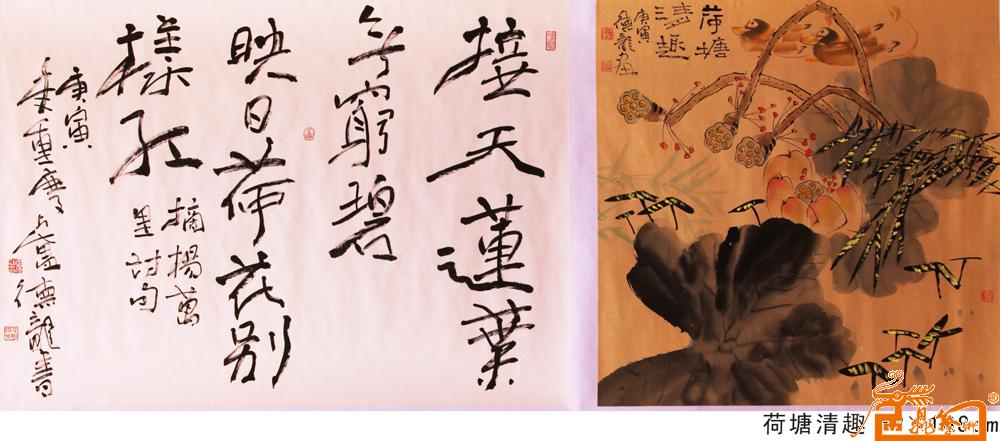 接天蓮葉
无窮碧
映日荷花别
樣红
摘楊萬
里诗句
庚寅
德龍書
荷塘
清趣
庚寅
德龍画
荷塘清趣